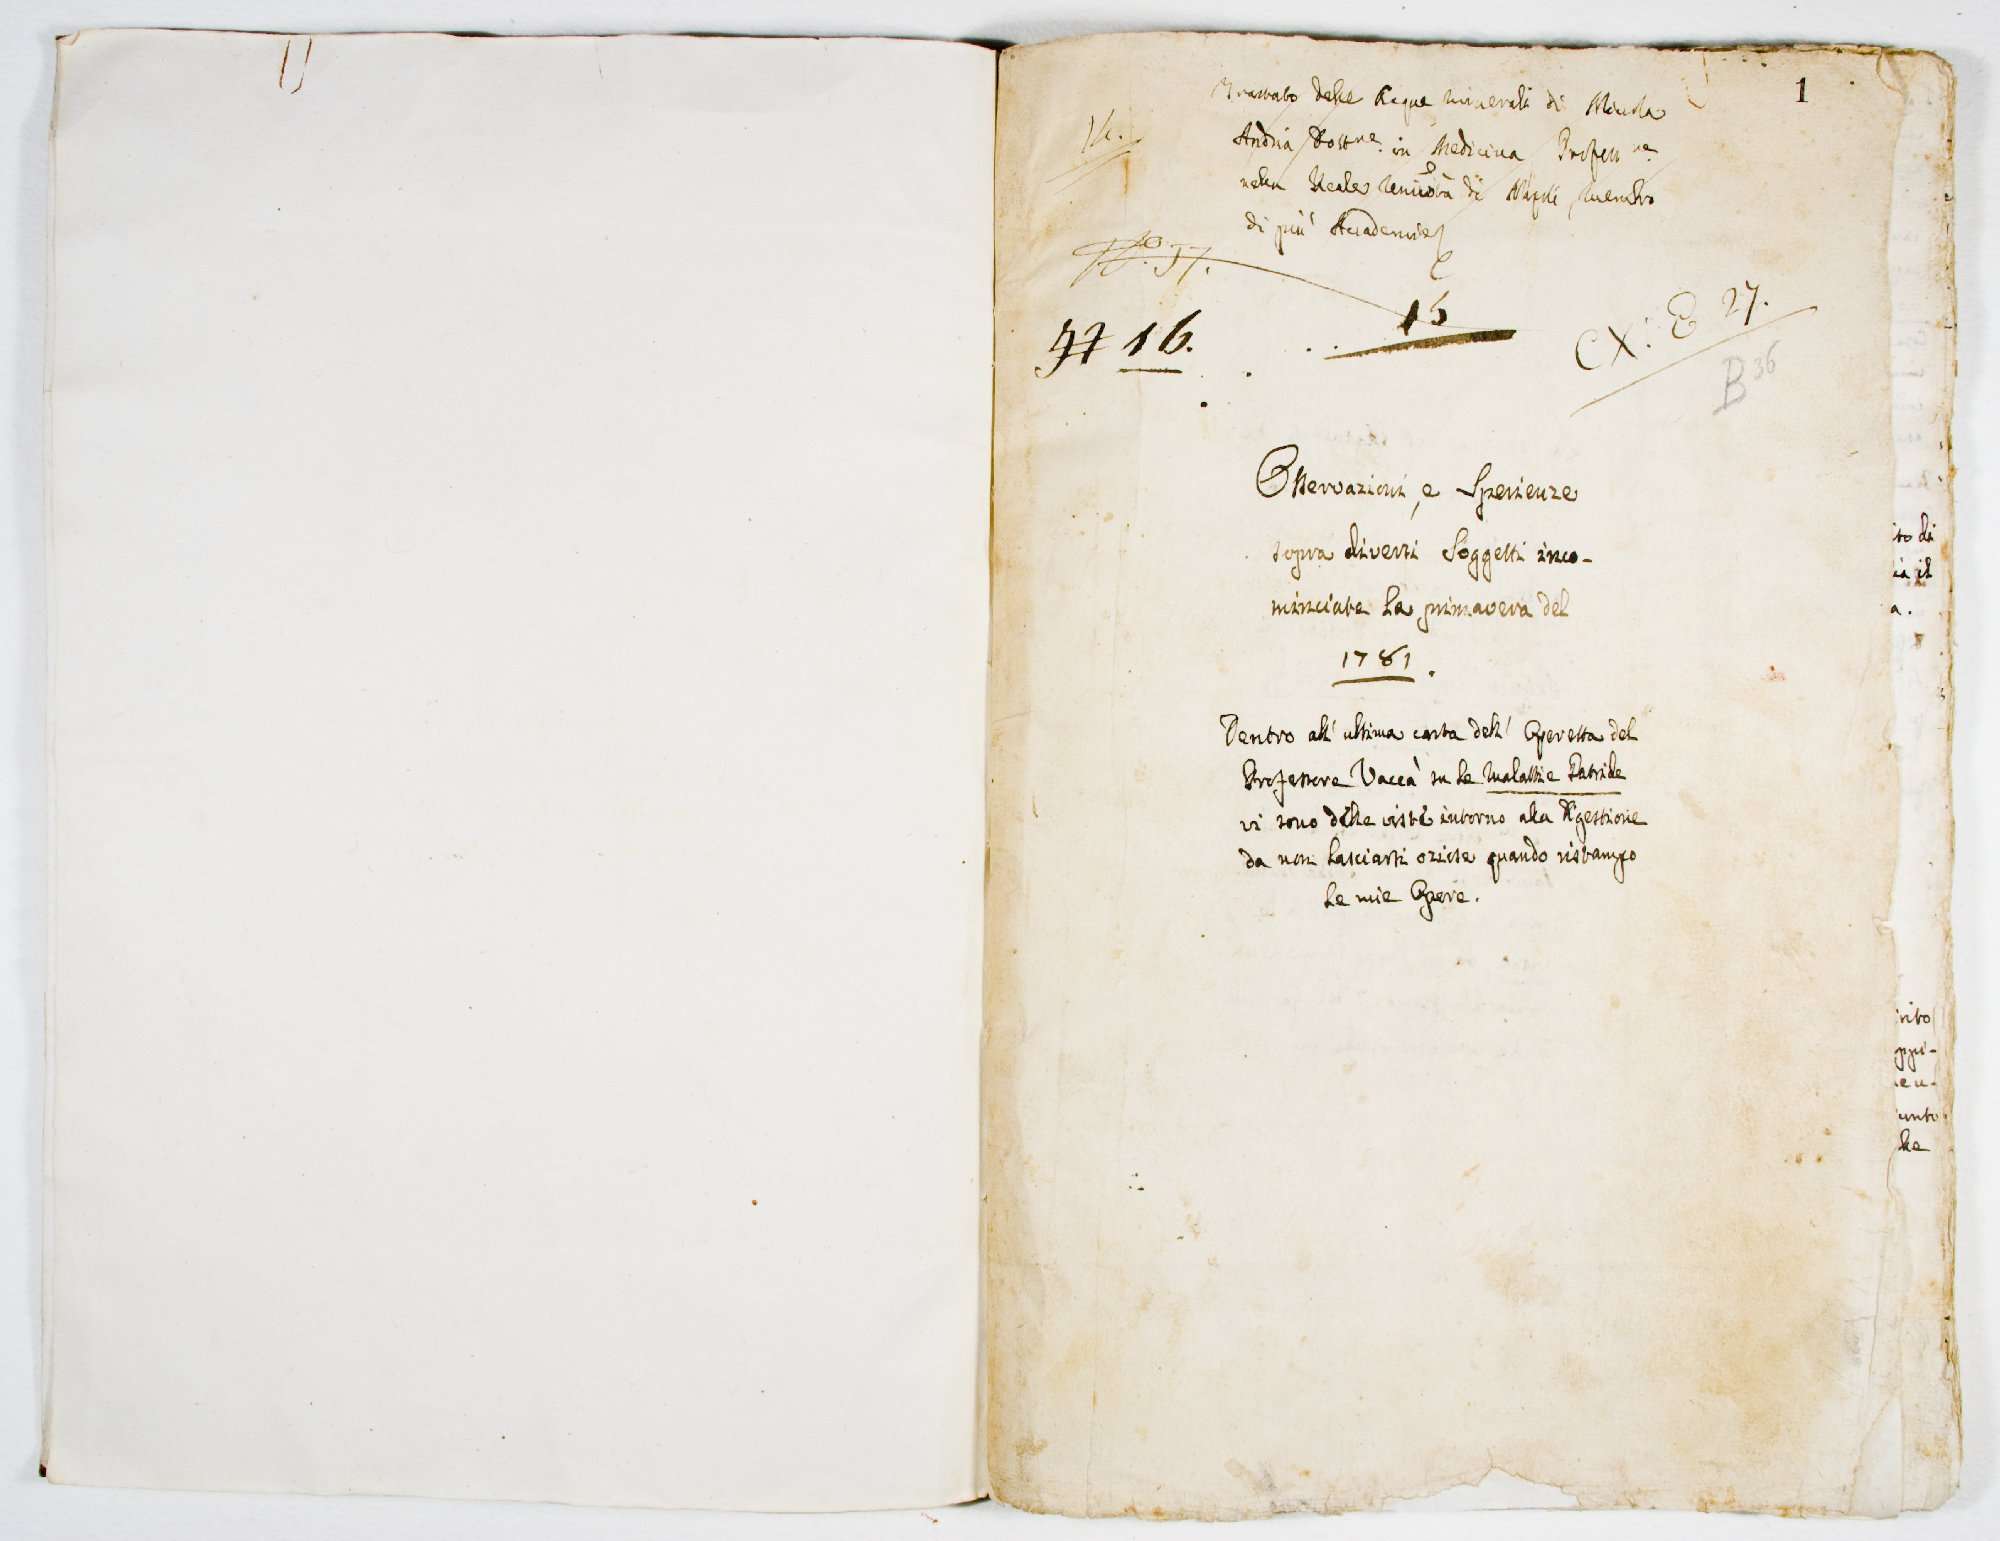 1
Trattato delle Acque minerali di Nicola
Andria Dott.re in Medicina Profess.re
nella Reale Università di Napoli, membro
di più Accademie
16.
N.° 37.
15
16.
CX: E 27.
B 36
Osservazioni, e Sperienze
sopra diversi Soggetti inco-
minciate la primavera del
1781.
Dentro all' ultima carta dell' Operetta del
Professore Vaccà su le Malattie Putride
vi sono delle viste intorno alla Digestione
da non lasciarsi oziose quando ristampo
le mie Opere.